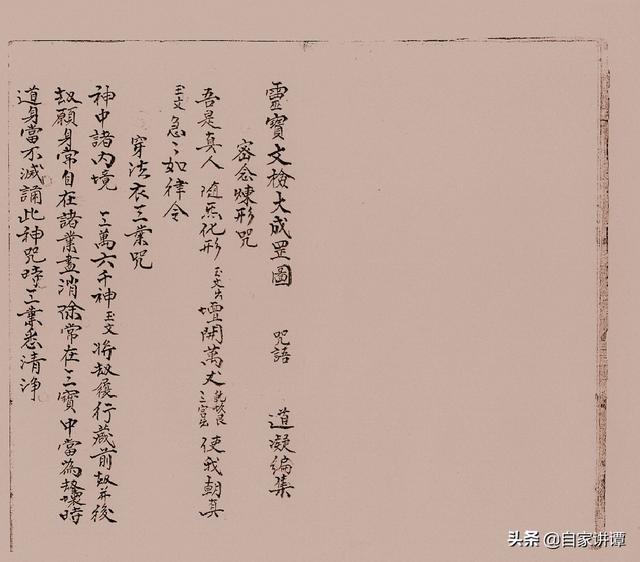 靈寶文檢大成罡圖 咒語 道凝編集
密念煉形咒
吾是真人 隨炁化形 玉文出 壇開萬丈 乾坎艮三宮出 使我朝真
玉文 急〻如律令
穿法衣三業咒
神中諸內境 三萬六千神 玉文 將刼履行藏前刼并後
刼願身常自在諸業盡消除常在三寶中當為刼壞時
道身當不滅誦此神咒時三業悉清淨
头条 @自家讲谭